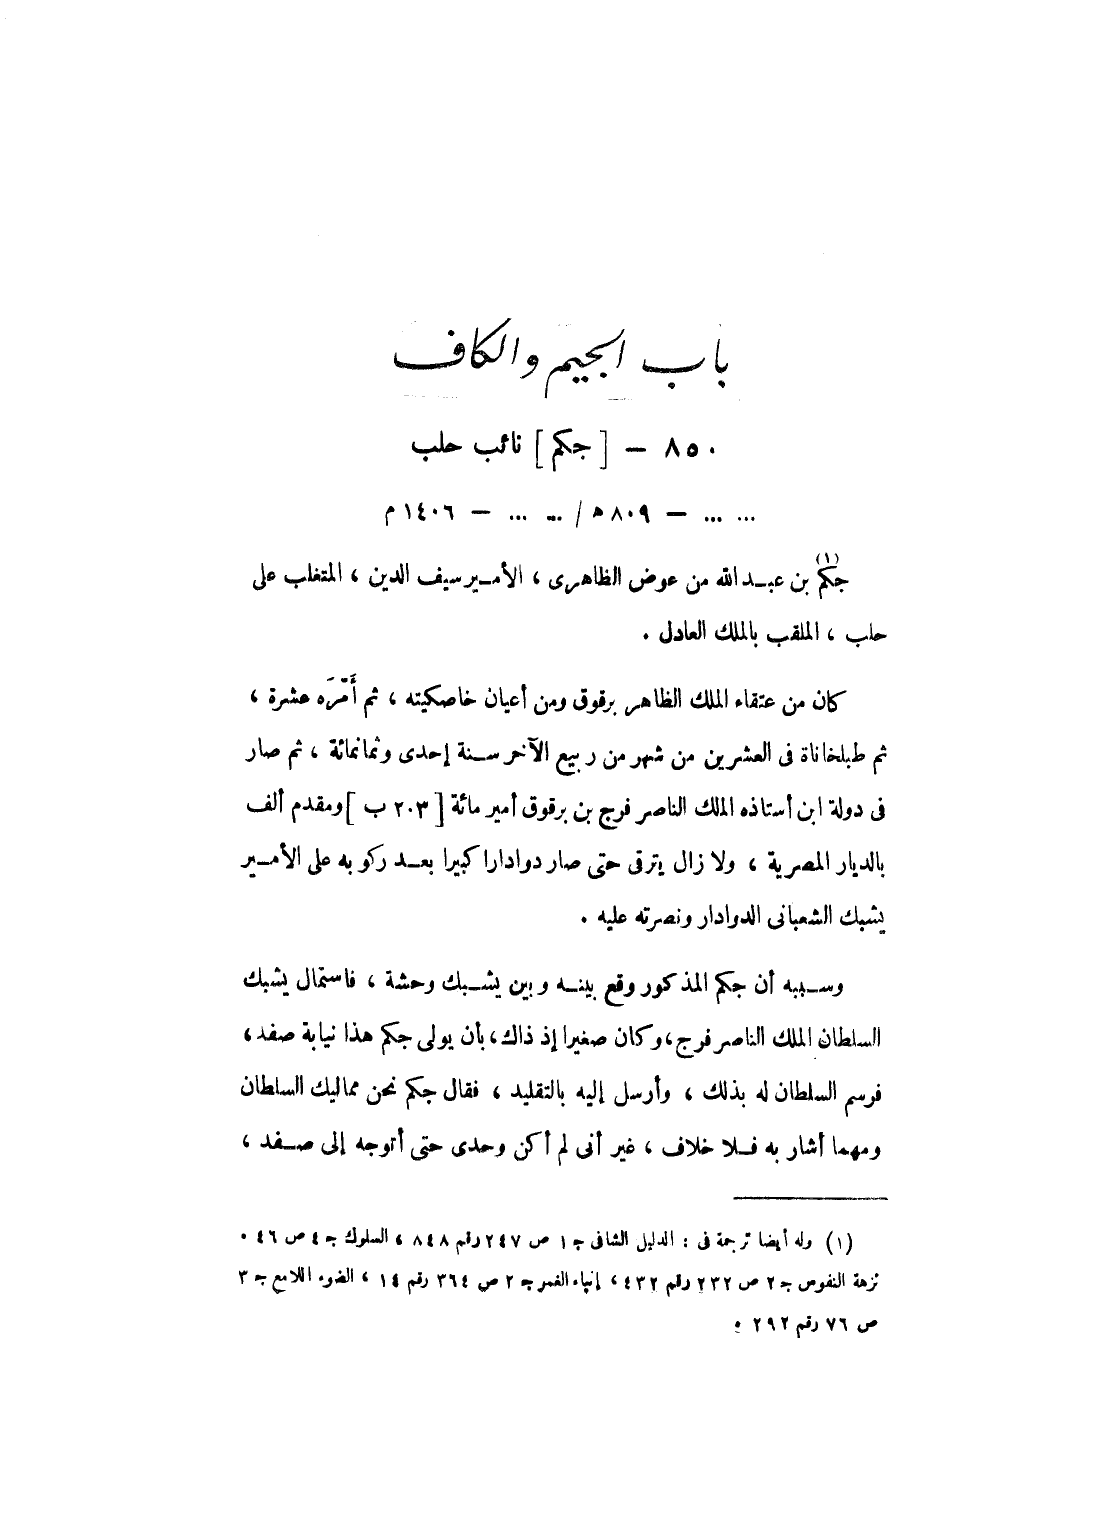 باب الجيم والكاف
٨٥٠ – [ جكم ] نائب حلب
... ... – ٨٠٩ هـ / ... ... – ١٤٠٦ م
جكم (١) بن عبد الله من عوض الظاهرى ، الأمير سيف الدين ، المتغلب على
حلب ، الملقب بالملك العادل .
كان من عتقاء الملك الظاهر برقوق ومن أعيان خاصكيته ، ثم أَمَّرَه عشرة ،
ثم طبلخاناة فى العشرين من شهر من ربيع الآخر سنة إحدى وثمانمائة ، ثم صار
فى دولة ابن أستاذه الملك الناصر فرج بن برقوق أمير مائة [ ٢٠٣ ب ] ومقدم ألف
بالديار المصرية ، ولا زال يترقى حتى صار دوادارا كبيرا بعد ركوبه على الأمير
يشبك الشعبانى الدوادار ونصرته عليه .
وسببه أن جكم المذكور وقع بينه وبين يشبك وحشة ، فاستمال يشبك
السلطان الملك الناصر فرج، وكان صغيرا إذ ذاك، بأن يولى جكم هذا نيابة صفد،
فرسم السلطان له بذلك ، وأرسل إليه بالتقليد ، فقال جكم نحن مماليك السلطان
ومهما أشار به فلا خلاف ، غير أنى لم أكن وحدى حتى أتوجه إلى صفد ،
(١) وله أيضا ترجمة فى : الدليل الشافى جـ ١ ص ٢٤٧ رقم ٨٤٨ ، السلوك جـ ٤ ص ٤٦ .
نزهة النفوس جـ ٢ ص ٢٣٢ رقم ٤٣٢ ، إنباء الغمر جـ ٢ ص ٣٦٤ رقم ١٤ ، الضوء اللامع جـ ٣
ص ٧٦ رقم ٢٩٢ .